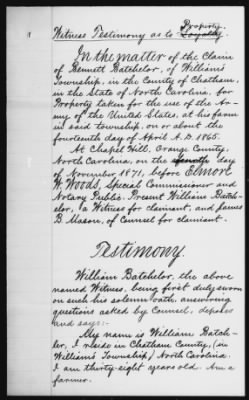 Property
Witness Testimony as to Loyalty.
In the matter of the Claim
of Bennett Batchelor, of Williams
Township, in the County of Chatham,
in the State of North Carolina, for
Property taken for the use of the Ar-
my of the United States, at his farm
in said township, on or about the
fourteenth day of April A.D. 1865.
At Chapel Hill, Orange County,
North Carolina, on the day
of November 1871, before Elmore
W. Woods, Special Commissioner and
Notary Public. Present William Batch-
elor, a Witness for claimant, and James
B. Mason, of Counsel for claimant.
Testimony.
William Batchelor, the above
named Witness, being first duly sworn
on such his solemn oath, answering
questions asked by Counsel, deposes
and says:-
My name is William Batch-
elor, I reside in Chatham County, (in
William's Township,) North Carolina.
I am thirty-eight years old. Am a
farmer.